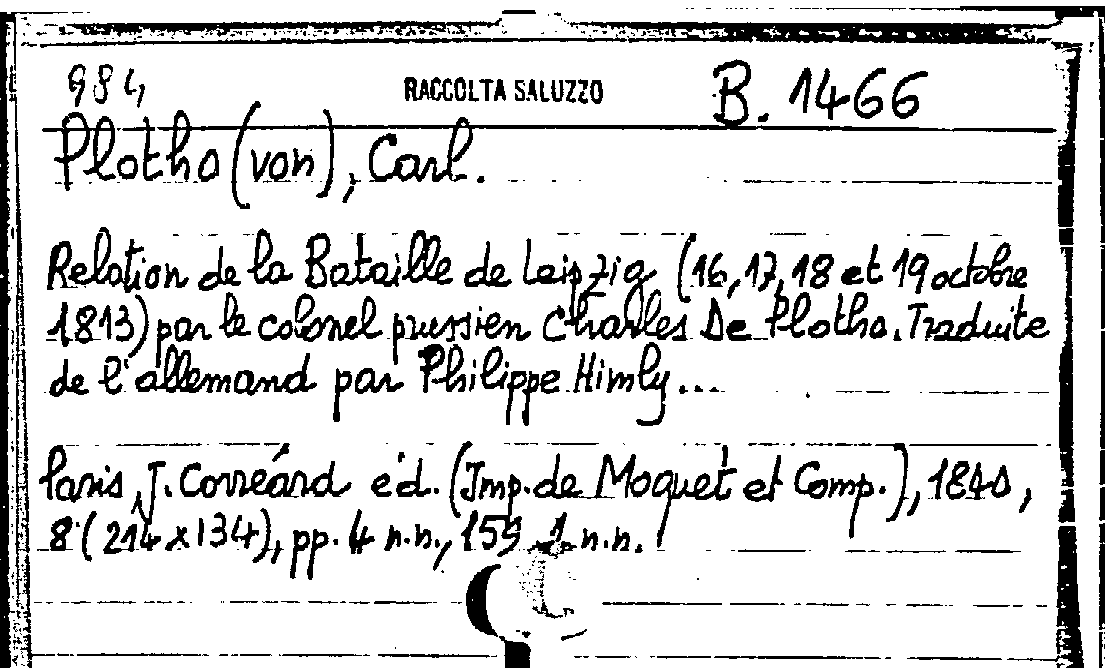 984
RACCOLTA SALUZZO
B. 1466
Plotho (von), Carl.
Relation de la Bataille de Leipzig (16, 17, 18 et 19 octobre
1813) par le colonel prussien Charles De Plotho. Traduite
de l'allemand par Philippe Himly...
Paris, J. Corréard éd. (Imp. de Moquet et Comp.), 1840,
8° (214 x 134), pp. 4 n.n., 159, 1 n.n.